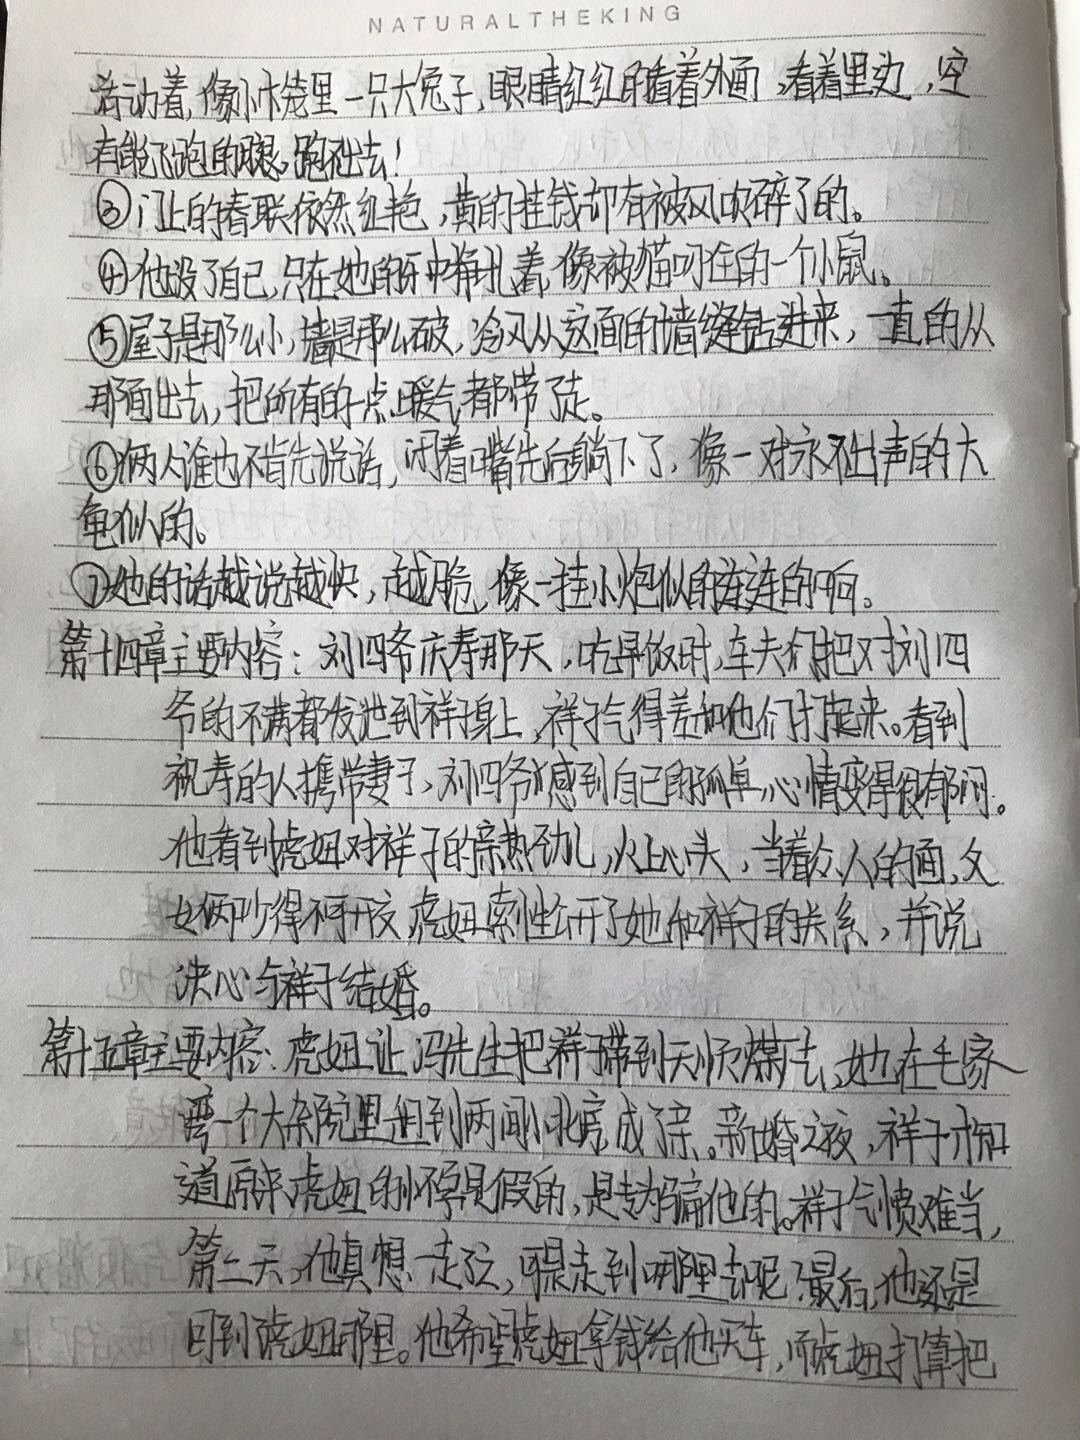 NATURALTHEKING
活动着,像小木笼里一只大兔子,眼睛红红的看着外面,看着里边,空
有能飞跑的腿,跑不出去!
③门上的春联依然红艳,黄的挂钱却有被风吹碎了的。
④他没了自己,只在她的牙中挣扎着,像被猫叼住的一个小鼠。
⑤屋子是那么小,墙是那么破,冷风从这面的墙缝钻进来,一直的从
那面出去,把所有的一点暖气都带了走。
⑥俩人谁也不肯先说话,闭着嘴先后躺下了,像一对永不出声的大
龟似的。
⑦她的话越说越快,越脆,像一挂小炮似的连连的响。
第十四章主要内容:刘四爷庆寿那天,吃早饭时,车夫们把对刘四
爷的不满都发泄到祥子身上,祥子气得差和他们打起来。看到
祝寿的人携带妻子,刘四爷感到自己的孤单,心情变得很郁闷。
他看到虎妞对祥子的亲热劲儿,火上心头,当着众人的面,父
女俩吵得不可开交,虎妞索性公开了她和祥子的关系,并说
决心与祥子结婚。
第十五章主要内容:虎妞让冯先生把祥子带到天顺煤厂去,她在毛家
湾一个大杂院里租到两间小北房,成了亲。新婚之夜,祥子才知
道原来虎妞的怀孕是假的,是专为骗他的。祥子气愤难当,
第二天,他真想一走了之,可是走到哪里去呢?最后,他还是
回到虎妞那里。他希望虎妞拿钱给他买车,而虎妞打算把